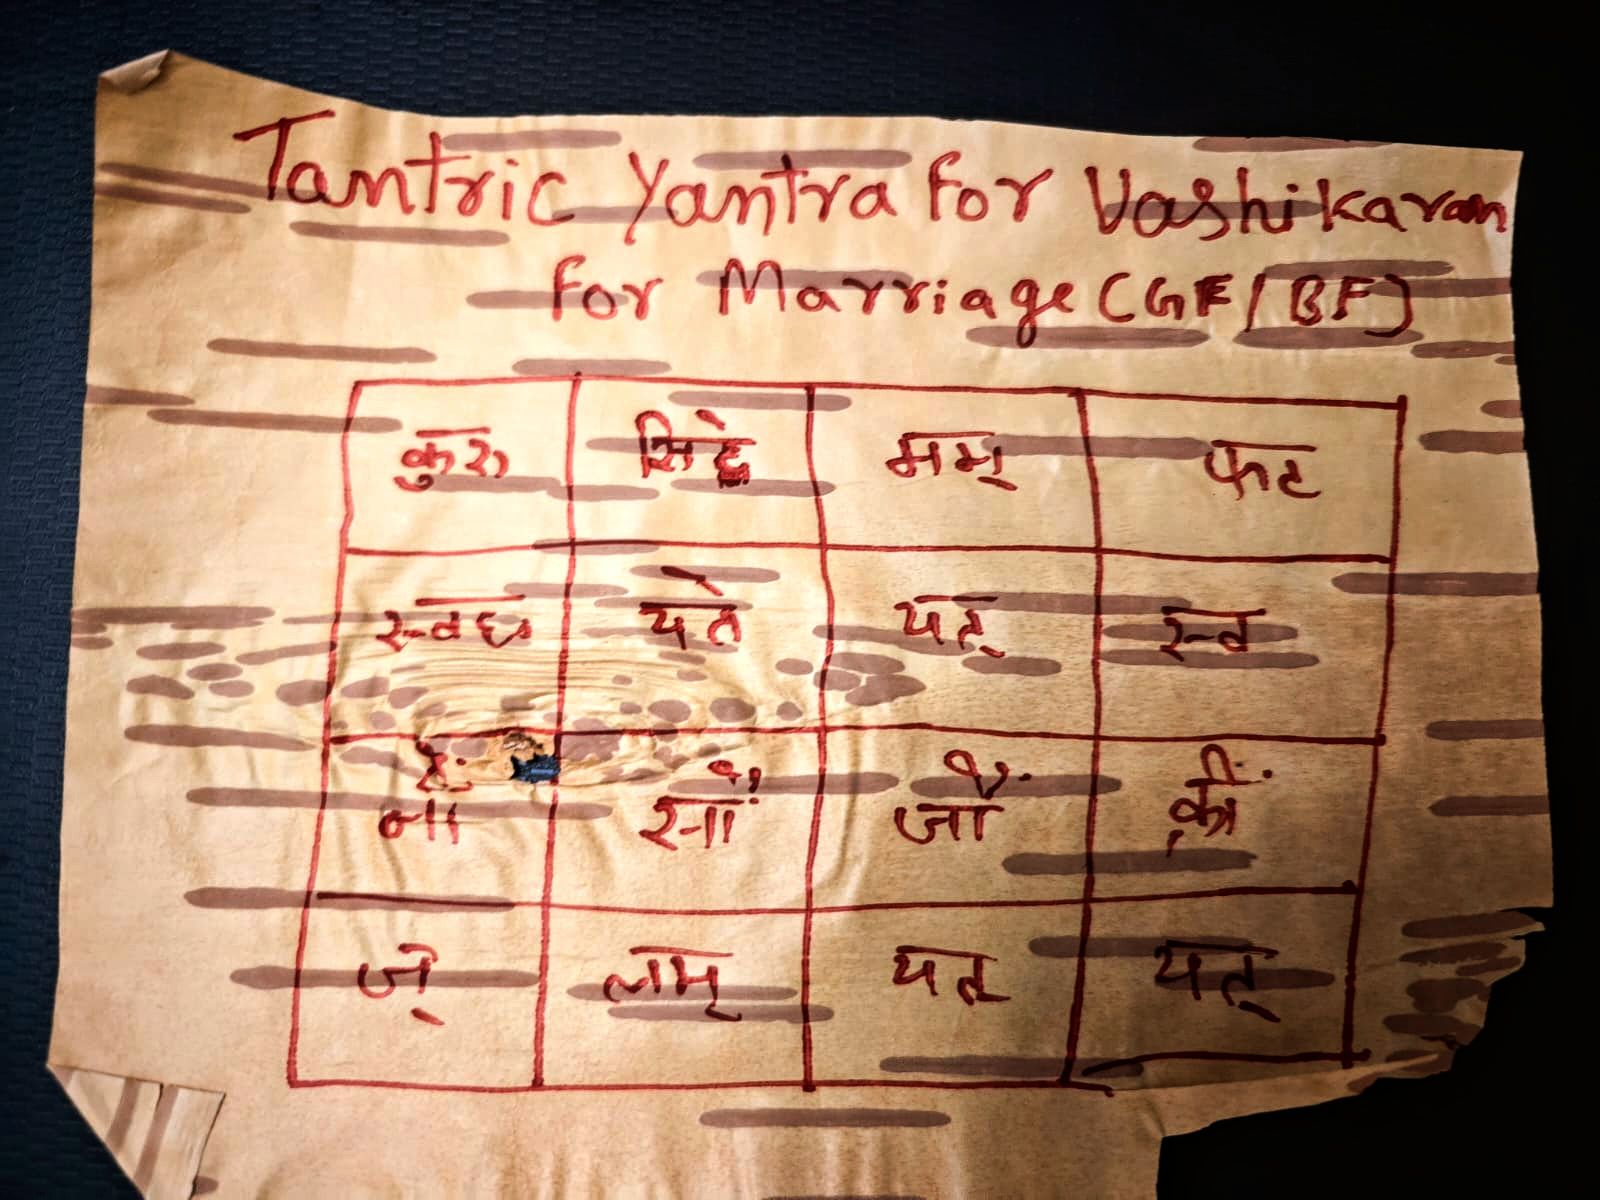 Tantric Yantra for Vashikaran
for Marriage (GF/BF)
कुरु सिद्दे मम् फट
यते यत् स्व
क्रीं
ज् लम् यत यत्